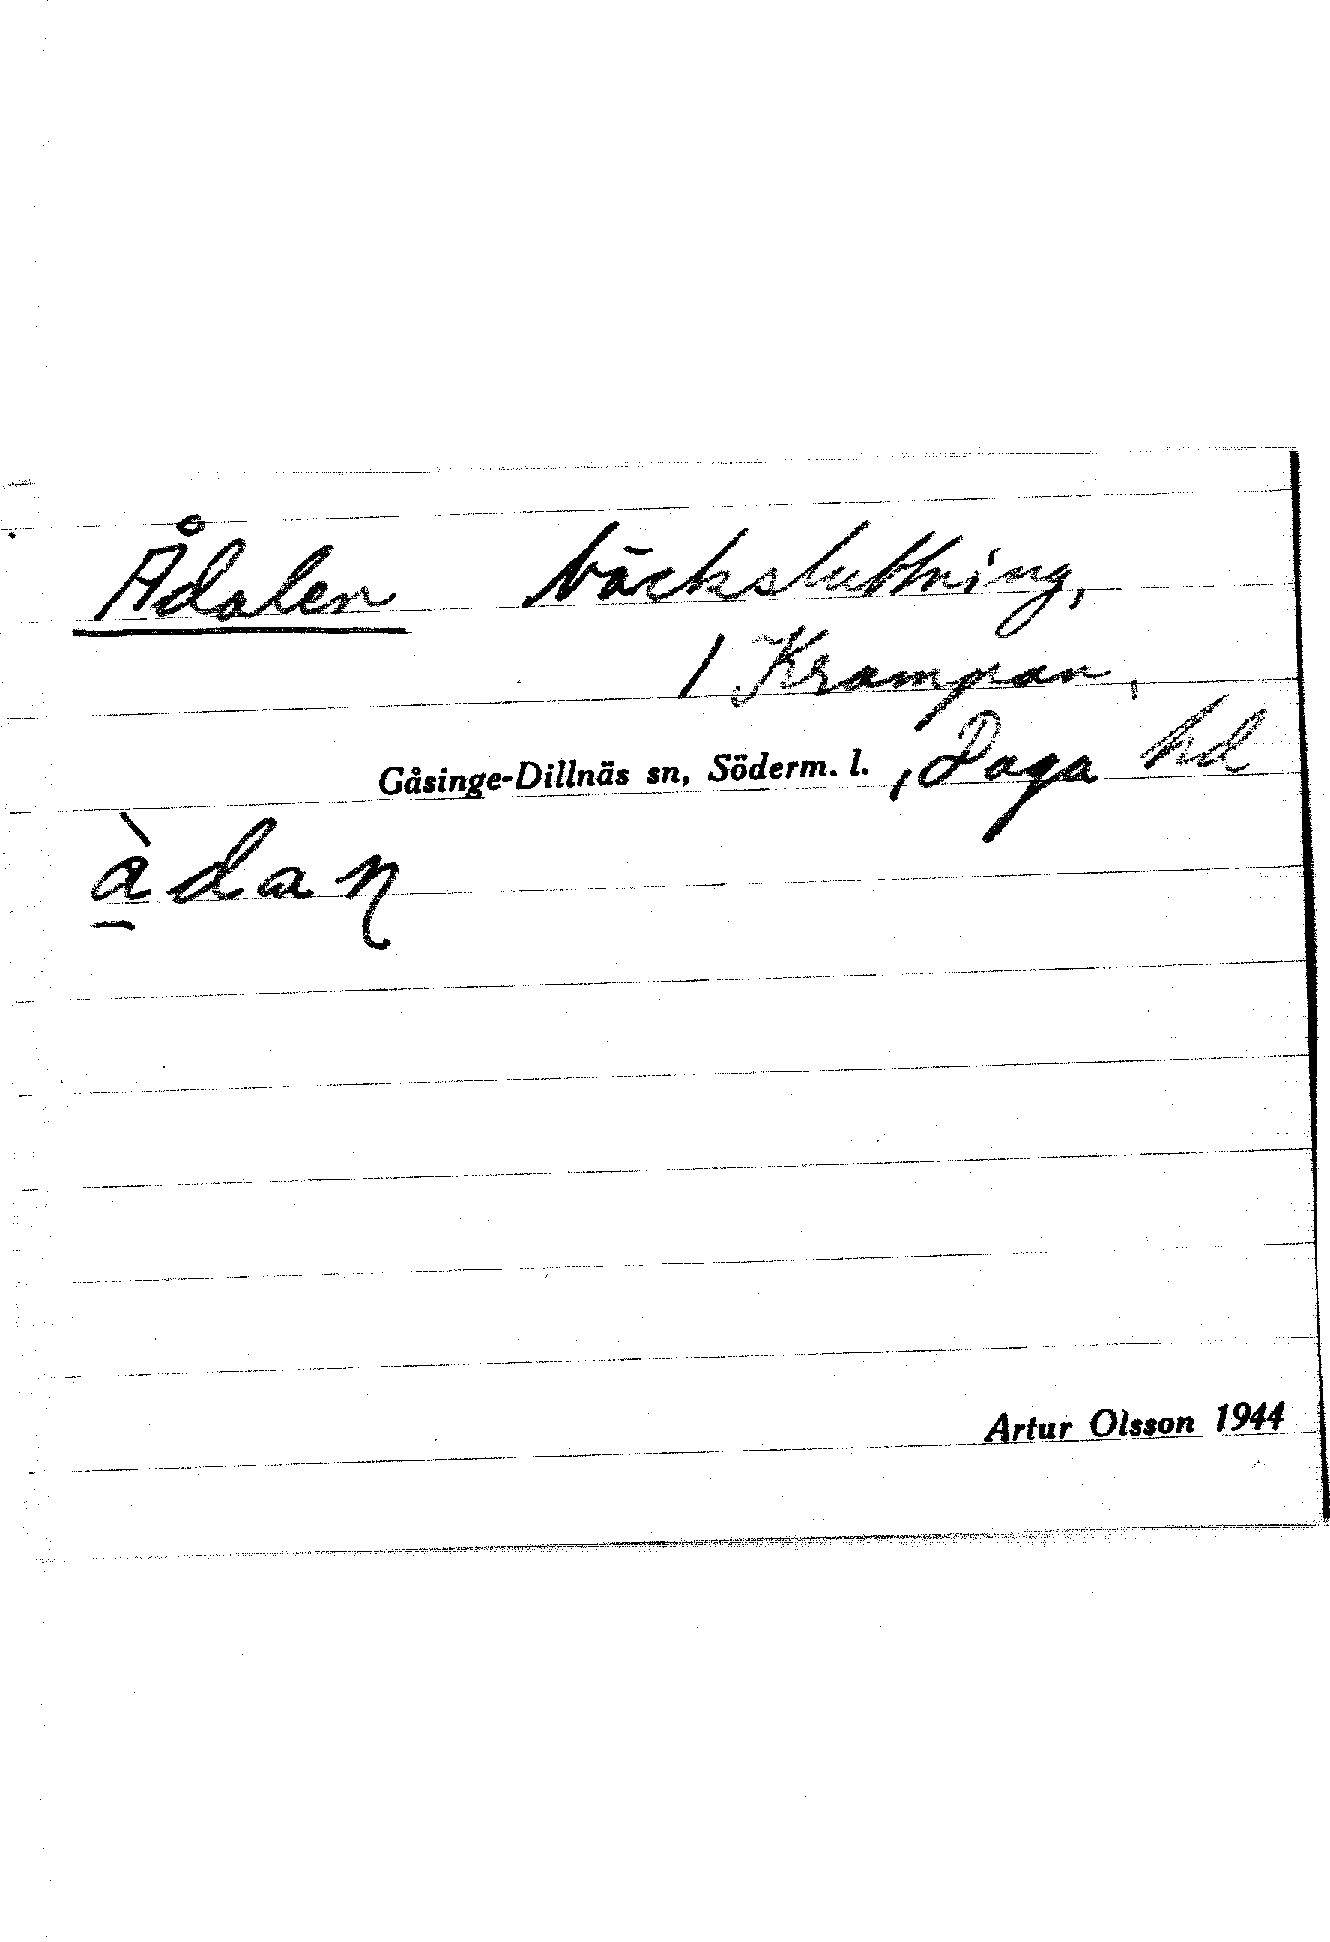 Ådalen bäcksluttning,
/ Krampan,
Gåsinge-Dillnäs sn, Söderm. l. , Daga hd
à̱daɳ
Artur Olsson 1944